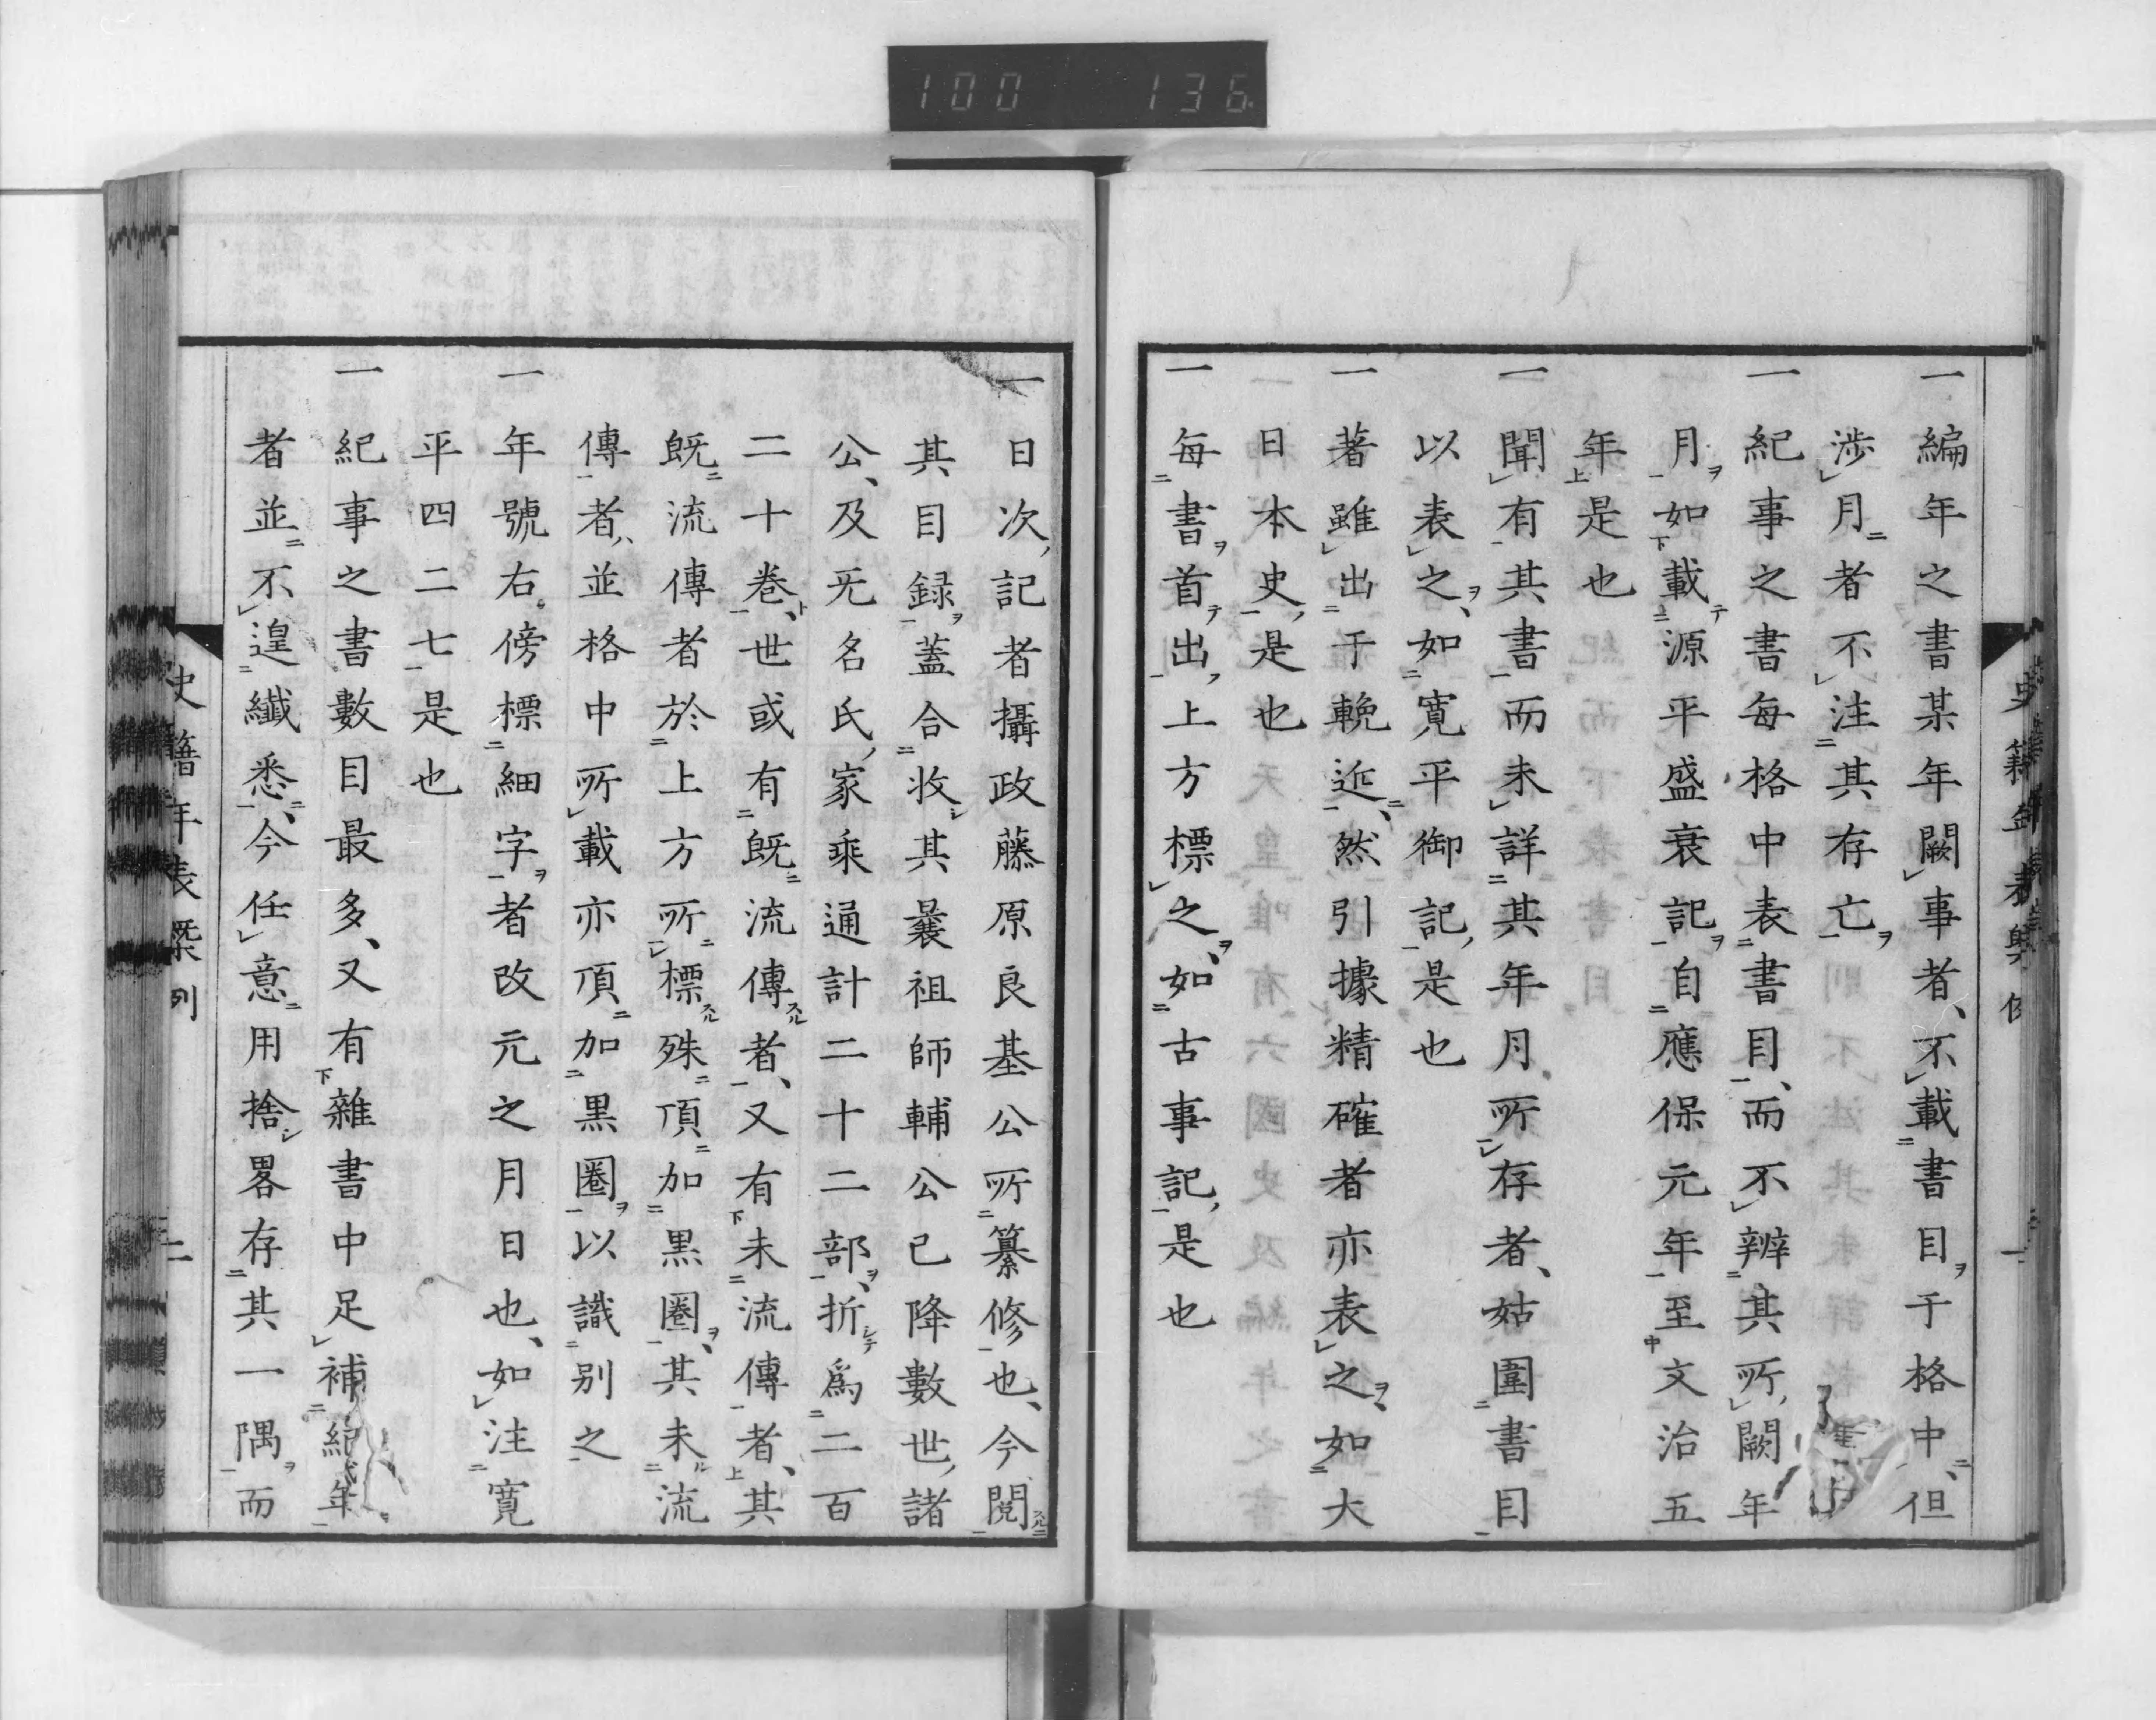 100 136
史籍年表
一
一編年之書某年闕事者、不載書目于格中、但
涉月者不注其存亡
一紀事之書每格中表書目、而不辨其所闕年
月如載源平盛衰記自應保元年至文治五
年是也
一聞有其書而未詳其年月、所存者、姑圍書目
以表之、如寬平御記是也
一著雖出于輓近、然引據精確者亦表之、如大
日本史是也
一每書首出上方標之、如古事記是也
一日次記者攝政藤原良基公所纂修也、今閱
其目録蓋合收其曩祖師輔公已降數世諸
公、及旡名氏家乘通計二十二部、折爲二百
二十卷、世或有既流傳者、又有未流傳者、其
既流傳者於上方所標殊頂加黒圈、其未流
傳者、並格中所載亦頂加黒圈以識别之
一年號右傍標細字者改元之月日也、如注寬
平四二七是也
一紀事之書數目最多、又有雜書中足補紀年
者並不遑纖悉、今任意用捨畧存其一隅而
史籍年表
二